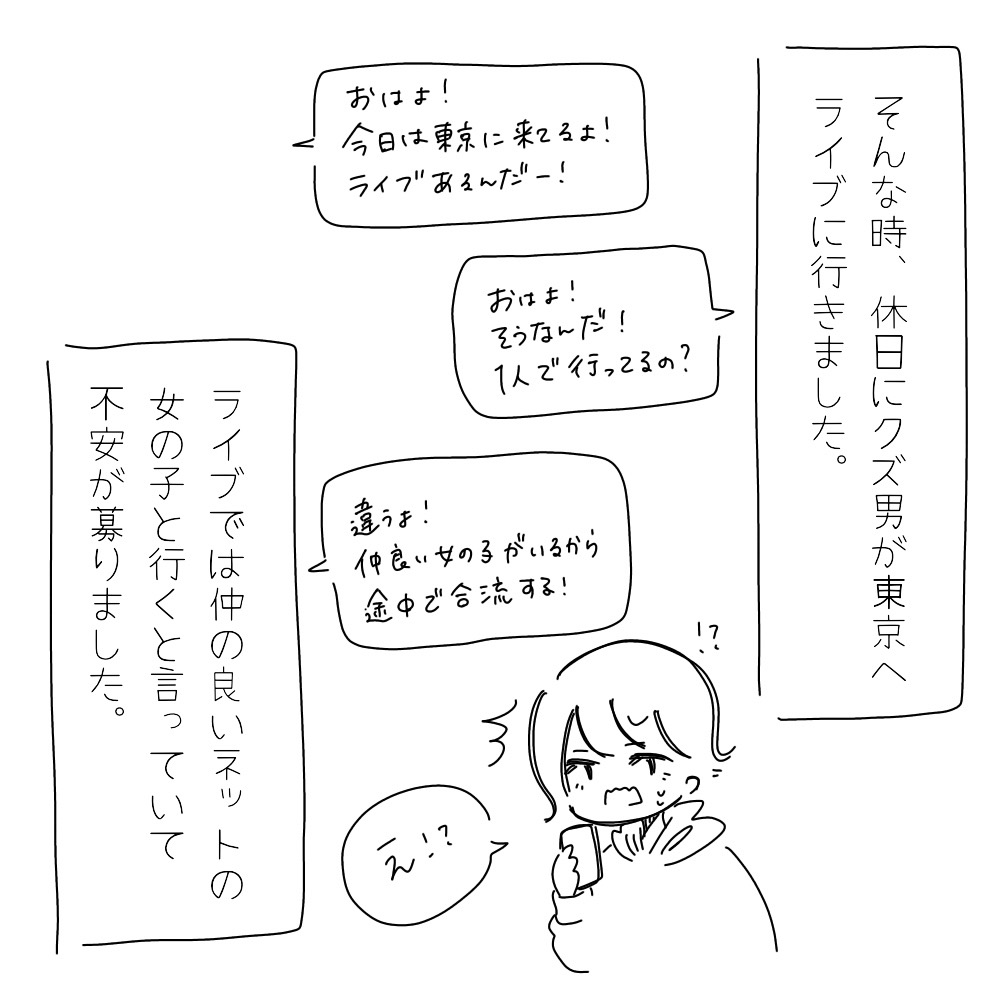 そんな時、休日にクズ男が東京へ
ライブに行きました。
おはよ!
今日は東京に来てるよ!
ライブあるんだー!
おはよ!
そうなんだ!
1人で行ってるの?
違うよ!
仲良い女の子がいるから
途中で合流する!
!?
え!?
ライブでは仲の良いネットの
女の子と行くと言っていて
不安が募りました。